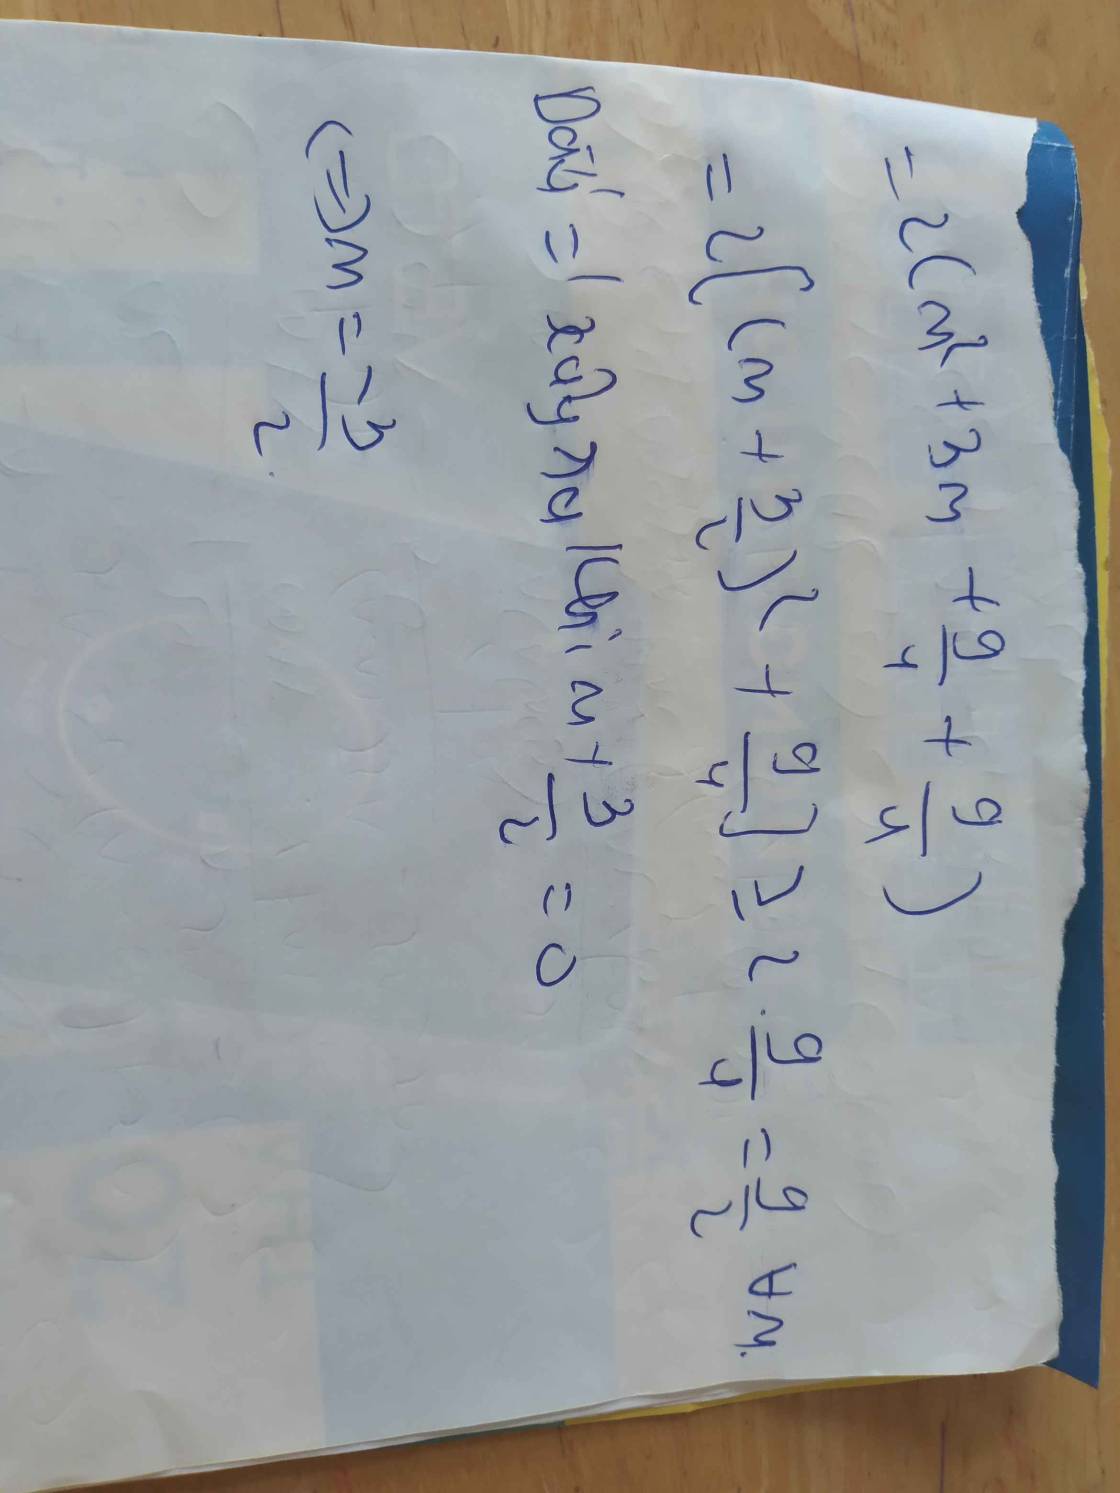 = 2(m² + 3m + 9/4 + 9/4)
= 2[(m + 3/2)² + 9/4] ≥ 2 . 9/4 = 9/2 ∀m.
Dấu "=" xảy ra khi m + 3/2 = 0
(=) m = -3/2.